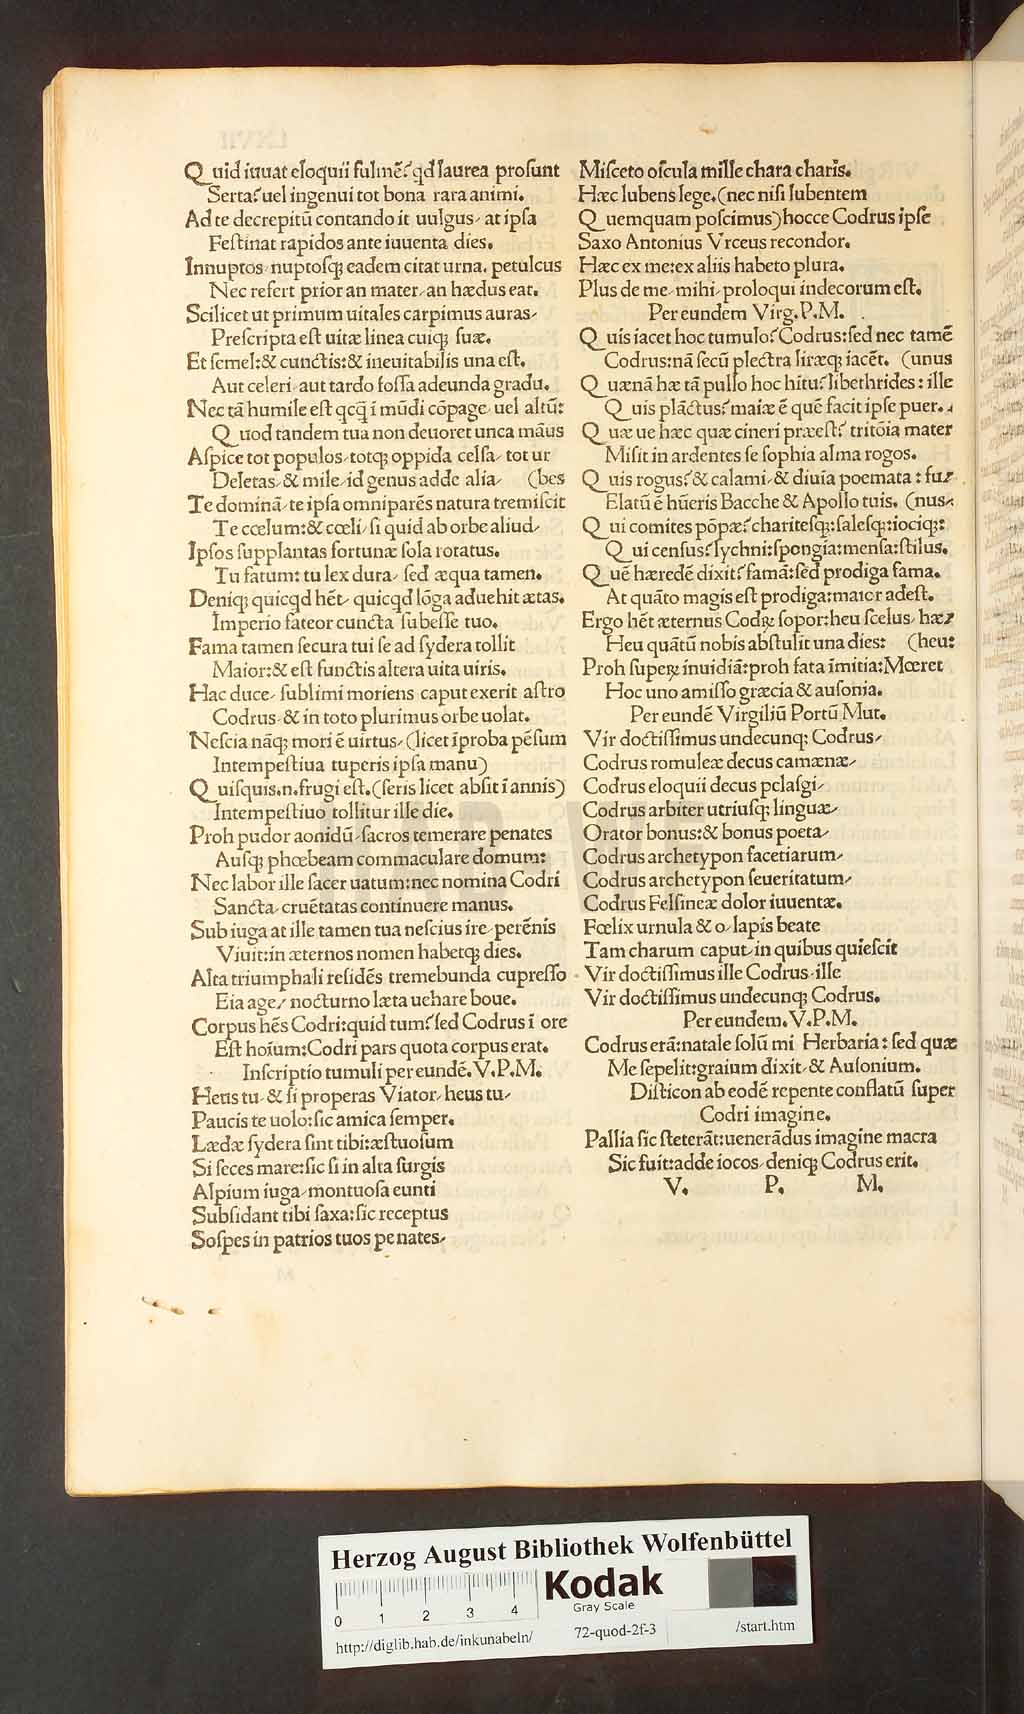 Quid iuuat eloquii fulmē? qd laurea prosunt
Serta? uel ingenui tot bona rara animi.
Ad te decrepitū contando it uulgus, at ipsa
Festinat rapidos ante iuuenta dies.
Innuptos, nuptosq; eadem citat urna. petulcus
Nec refert prior an mater, an hædus eat.
Scilicet ut primum uitales carpimus auras,
Prescripta est uitæ linea cuiq; suæ.
Et semel: & cunctis: & ineuitabilis una est.
Aut celeri, aut tardo fossa adeunda gradu.
Nec tā humile est qcq̄ ī mūdi cōpage, uel altū:
Quod tandem tua non deuoret unca māus
Aspice tot populos, totq; oppida celsa, tot ur
Deletas, & mile, id genus adde alia, (bes
Te dominā, te ipsa omniparēs natura tremiscit
Te cœlum: & cœli, si quid ab orbe aliud,
Ipsos supplantas fortunæ sola rotatus.
Tu fatum: tu lex dura, sed æqua tamen.
Deniq; quicqd hēt, quicqd lōga aduehit ætas.
Imperio fateor cuncta subesse tuo.
Fama tamen secura tui se ad sydera tollit
Maior: & est functis altera uita uiris.
Hac duce, sublimi moriens caput exerit astro
Codrus, & in toto plurimus orbe uolat.
Nescia nāq; mori ē uirtus, (licet īproba pēsum
Intempestiua tuperis ipsa manu)
Quisquis .n. frugi est. (seris licet absit ī annis)
Intempestiuo tollitur ille die.
Proh pudor aonidū, sacros temerare penates
Ausq; phœbeam commaculare domum:
Nec labor ille sacer uatum: nec nomina Codri
Sancta, cruētatas continuere manus.
Sub iuga at ille tamen tua nescius ire, perēnis
Viuit: in æternos nomen habetq; dies.
Alta triumphali residēs tremebunda cupresso
Eia age, nocturno læta uehare boue.
Corpus hēs Codri: quid tum? sed Codrus ī ore
Est hoīum: Codri pars quota corpus erat.
Inscriptio tumuli per eundē. V.P.M.
Heus tu, & si properas Viator, heus tu,
Paucis te uolo: sic amica semper.
Lædæ sydera sint tibi: æstuosum
Si seces mare: sic si in alta surgis
Alpium iuga, montuosa eunti
Subsidant tibi saxa: sic receptus
Sospes in patrios tuos penates,
Misceto oscula mille chara charis.
Hæc lubens lege. (nec nisi lubentem
Quemquam poscimus) hocce Codrus ipse
Saxo Antonius Vrceus recondor.
Hæc ex me: ex aliis habeto plura.
Plus de me, mihi, proloqui indecorum est.
Per eundem Virg. P.M.
Quis iacet hoc tumulo? Codrus: sed nec tamē
Codrus: nā secū plectra liræq; iacēt. (unus
Quænā hæ tā pullo hoc hitu? libethrides: ille
Quis plāctus? maiæ ē quē facit ipse puer.
Quæ ue hæc quæ cineri præest? tritōia mater
Misit in ardentes se sophia alma rogos.
Quis rogus? & calami, & diuia poemata: fu
Elatū ē hūeris Bacche & Apollo tuis. (nus,
Qui comites pōpæ? charitesq;: salesq;: iociq;:
Qui census? lychni: spongia: mensa: stilus.
Quē hæredē dixit? famā: sed prodiga fama.
At quāto magis est prodiga: maior adest.
Ergo hēt æternus Codꝝ sopor: heu scelus, hæ
Heu quātū nobis abstulit una dies: (heu:
Proh superꝝ inuidiā: proh fata īmitia: Mœret
Hoc uno amisso græcia & ausonia.
Per eundē Virgiliū Portū Mut.
Vir doctissimus undecunq; Codrus,
Codrus romuleæ decus camænæ,
Codrus eloquii decus pelasgi,
Codrus arbiter utriusq; linguæ,
Orator bonus: & bonus poeta,
Codrus archetypon facetiarum,
Codrus archetypon seueritatum,
Codrus Felsineæ dolor iuuentæ.
Fœlix urnula & o, lapis beate
Tam charum caput, in quibus quiescit
Vir doctissimus ille Codrus, ille
Vir doctissimus undecunq; Codrus.
Per eundem. V.P.M.
Codrus erā: natale solū mi Herbaria: sed quæ
Me sepelit: graium dixit, & Ausonium.
Disticon ab eodē repente conflatū super
Codri imagine.
Pallia sic steterāt: uenerādus imagine macra
Sic fuit: adde iocos, deniq; Codrus erit.
V. P. M.
Herzog August Bibliothek Wolfenbüttel
Kodak
Gray Scale
0 1 2 3 4
http://diglib.hab.de/inkunabeln/ 72-quod-2f-3 /start.htm